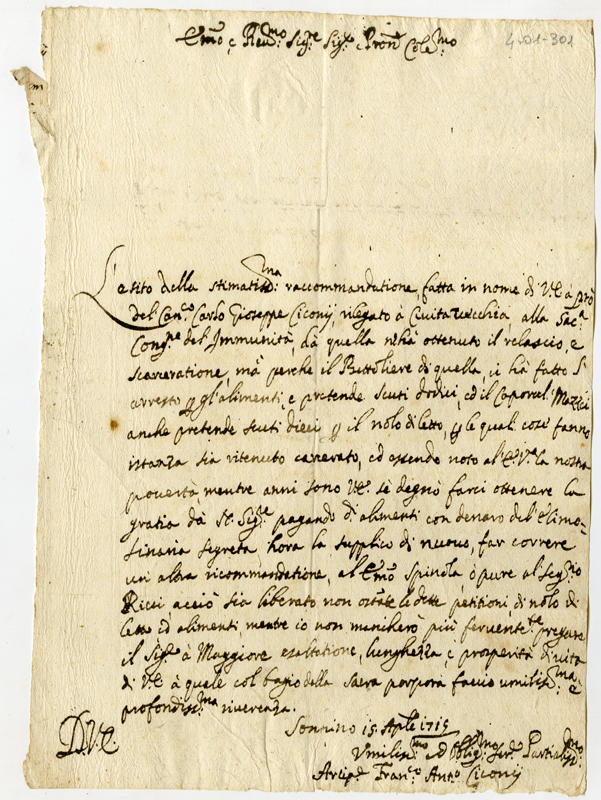 Emo e Reu:mo Sig:re Sig:r e Pron Col:mo
4.01-301
L'esito della stimatiss:ma raccommandatione, fatta in nome di V.E. à prò
del Can:co Carlo Gioseppe Ciconij, rilegato à Ciuita uecchia, alla Sac:a
Cong:ne dell'Immunità, dà quella n'hà ottenuto il relascio, e
scarceratione, mà perche il Bettoliere di quella, li hà fatto l'
arresto p gl'alimenti, e pretende scuti dodici, ed il Caporal Mazzei
anche pretende scuti dieci p il nolo di letto, p le quali cose fanno
istanza sia ritenuto carcerato, ed essendo noto al E.V.a la nostra
pouertà mentre anni sono V.E. sè degnò farci ottenere la
gratia dà N. Sig:re pagando di alimenti con denaro del'Elimo-
sinaria segreta hora la supplico di nuouo, far correre
un altra ricommandatione, al Emo Spinola ò pure al Seg:rio
Ricci acciò sia liberato non ostãte le dette petitioni di nolo di
letto ed alimenti, mentre io non mancherò più feruente:te pregare
il Sig:re à Maggiore esaltatione, lunghezza, e prosperità di uita
di V.E. à quale col bagio della Sacra porpora faccio umiliss:ma e
profondiss:ma riuerenza.
Sonnino 15 Aple 1715
D.V.E.
Vmiliss:mo ed Obblig:mo Ser:
Arcip:e Fran:co Ant:o Ciconij